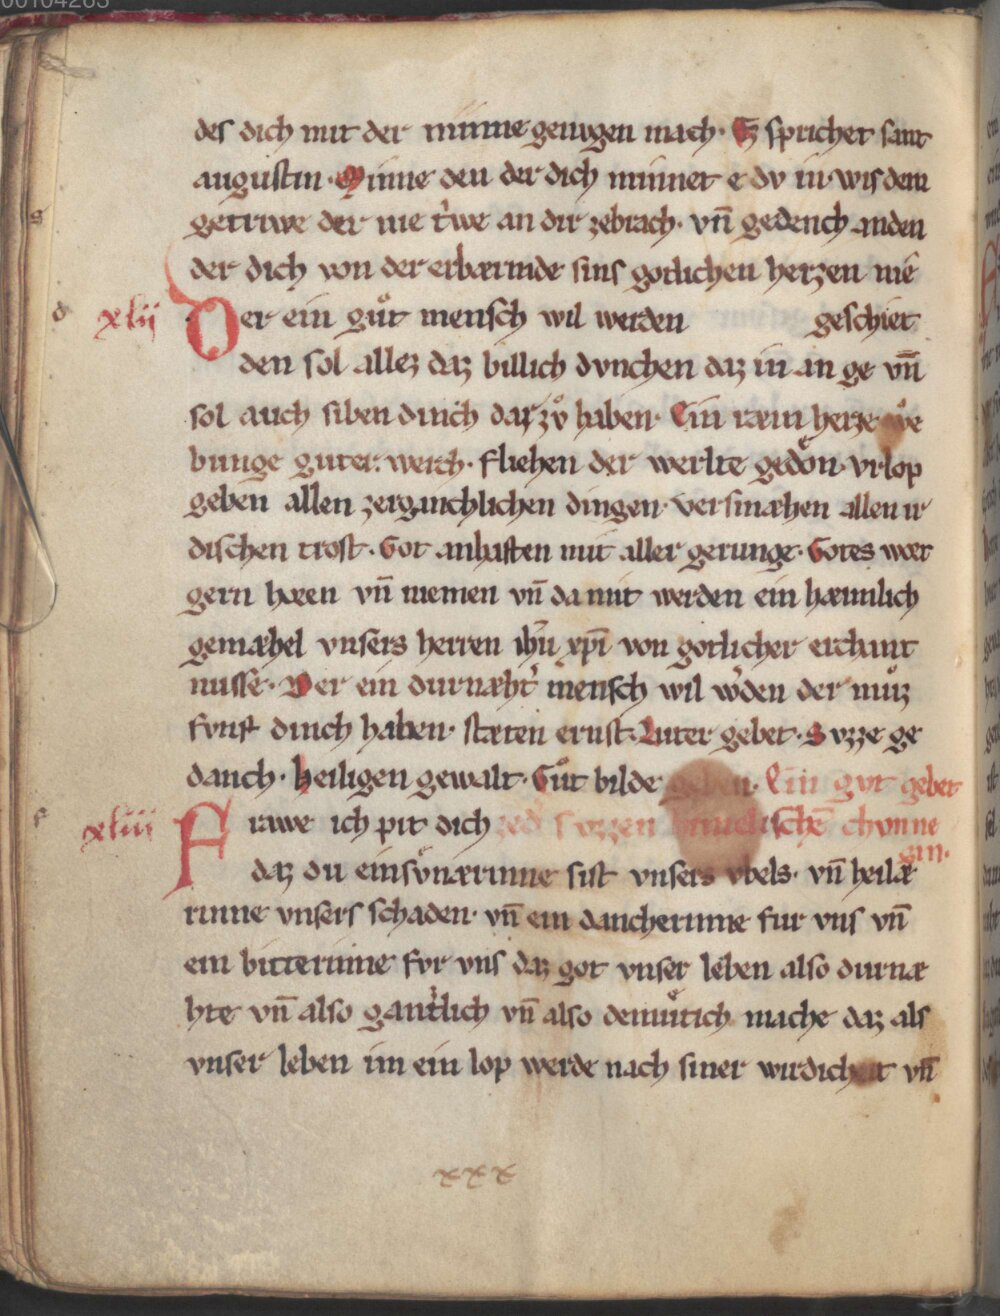 00104263
des dich mit der minne genvgen mach. Ez sprichet sant
augustin. Minne den der dich minnet e dv in. wis dem
getriwe der nie t'we an dir zebrach. vn̄ gedench an den
der dich von der erbærmde sins gotlichen herzen nie
xlii Der ein gůt mensch wil werden geschiet
den sol allez daz billich dvnchen daz in an ge vn̄
sol auch siben dinch dar zv̊ haben. Ein ræin herze
bunge guter werch. fliehen der werlte gedôn. vrlop
geben allen zerganchlichen dingen. versmæhen allen ir
dischen trost. Got anhaften mit aller gerunge. Gotes wort
gern hœren vn̄ niemen vn̄ da mit werden ein hæimlich
gemæhel vnsers herren ih̄u xp̄i von gotlicher erchant
nusse. Der ein durnæht' mensch wil w'den der můz
fvnf dinch haben. stæten ernst. Luter gebet. Svzze ge
danch. heiligen gewalt. Gůt bilde geben. Ein gvt gebet
xliii Frawe ich pit dich svzzen himelischē chvnne
gin.
daz du ein sv̊nærinne sist vnsers vbels. vn̄ heilæ
rinne vnsers schaden. vn̄ ein dancherinne fur vns vn̄
ein bitterinne fvr vns daz got vnser leben also durnæ
hte vn̄ also gantzlich vn̄ also demůtich mache daz als
vnser leben im ein lop werde nach siner wirdicheit vn̄
xxx